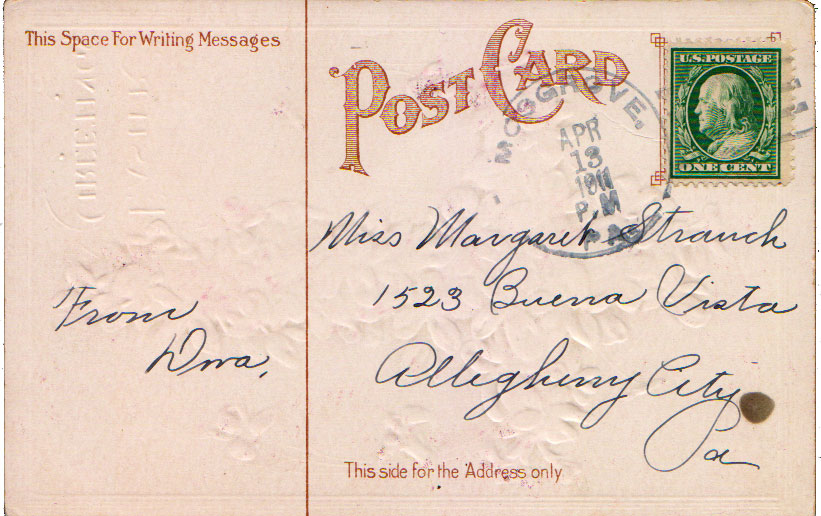 This Space For Writing Messages
POST CARD
U.S. POSTAGE
ONE CENT
APR
13
1911
P.M
PA
Miss Margaret Strauch
1523 Buena Vista
Allegheny City
Pa
From
This side for the Address only